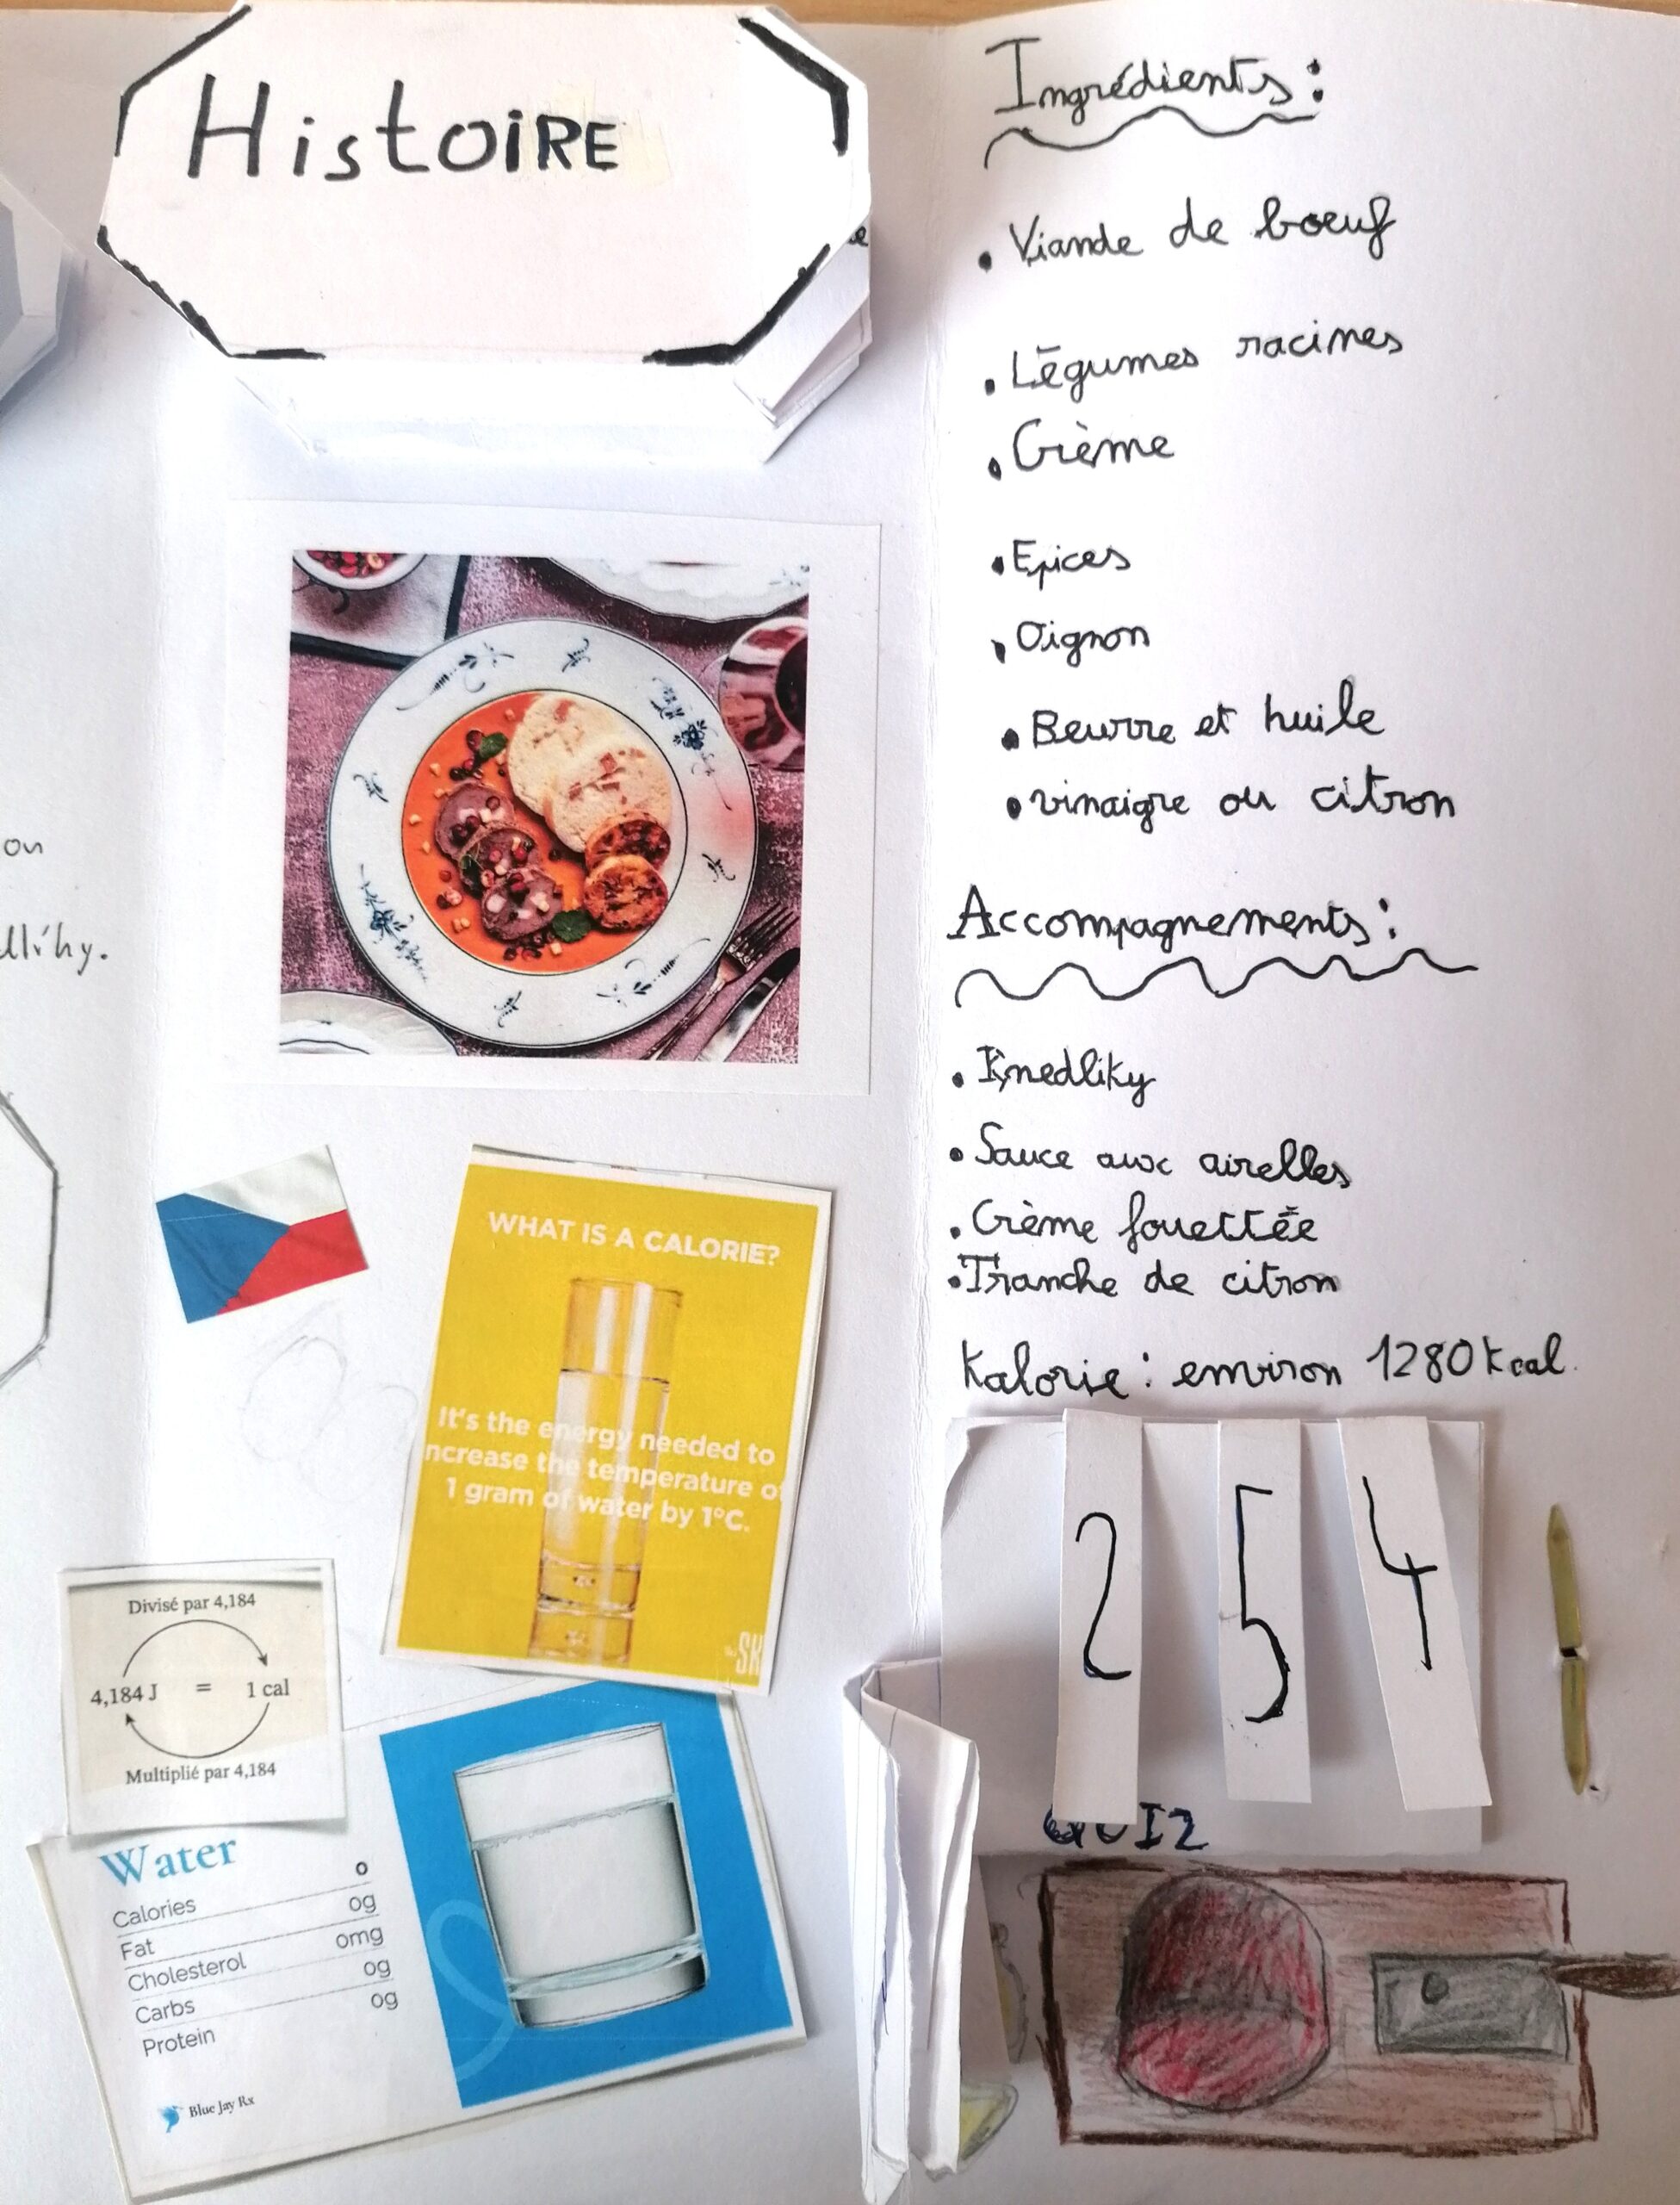 HistoIRE
on
dlíky.
WHAT IS A CALORIE?
It's the energy needed to
ncrease the temperature of
1 gram of water by 1°C.
SK
Divisé par 4,184
4,184 J = 1 cal
Multiplié par 4,184
Water
Calories 0
Fat 0g
Cholesterol 0mg
Carbs 0g
Protein 0g
Blue Jay Rx
Ingrédients:
• Viande de boeuf
• Légumes racines
• Crème
• Epices
• Oignon
• Beurre et huile
• vinaigre ou citron
Accompagnements:
• Knedliky
• Sauce aux airelles
• Crème fouettée
• Tranche de citron
Kalorie: environ 1280 kcal.
2 5 4
QUIZ